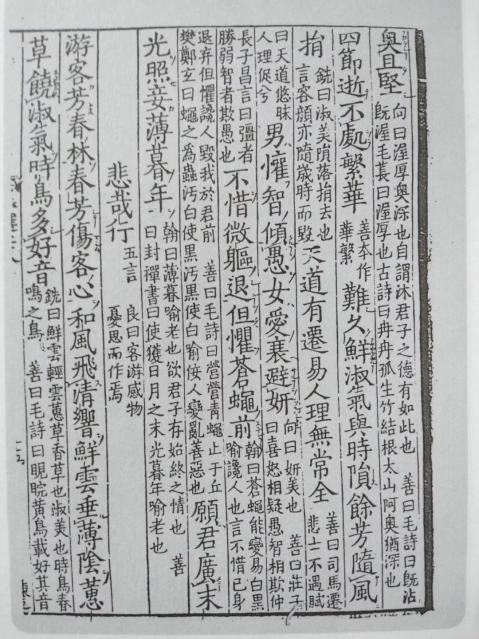 奧且堅 向曰渥厚奧深也自謂沐君子之德有如此也 善曰毛詩曰旣沾
旣渥毛萇曰渥厚也古詩曰冉冉孤生竹結根太山阿奧猶深也
四節逝不處繁華 善本作
華繁 難久鮮淑氣與時隕餘芳隨風
捐 銑曰淑美隕落捐去也
言容顔亦隨歲時而毀 天道有遷易人理無常全 善曰司馬遷
悲士不遇賦
曰天道悠昧
人理促兮 男懽智傾愚女愛衰避姸 向曰姸美也 善曰莊子
曰喜怒相疑愚智相欺仲
長子昌言曰彊者
勝弱智者欺愚也 不惜微軀退但懼蒼蠅前 翰曰蒼蠅能變易白黑
喻讒人也言不惜己身
退弃但懼讒人毀我於君前 善曰毛詩曰營營靑蠅止于丘
樊鄭玄曰蠅之爲蟲汚白使黑汚黑使白喻佞人變亂善惡也 願君廣末
光照妾薄暮年 翰曰薄暮喻老也欲君子存始終之情也 善
曰封禪書曰使獲日月之末光暮年喻老也
悲哉行 五言 良曰客游感物
憂思而作焉
游客芳春林春芳傷客心和風飛清響鮮雲垂薄陰蕙
草饒淑氣時鳥多好音 銑曰鮮雲輕雲蕙草香草也淑美也時鳥春
鳴之鳥 善曰毛詩曰睍睆黄鳥載好其音